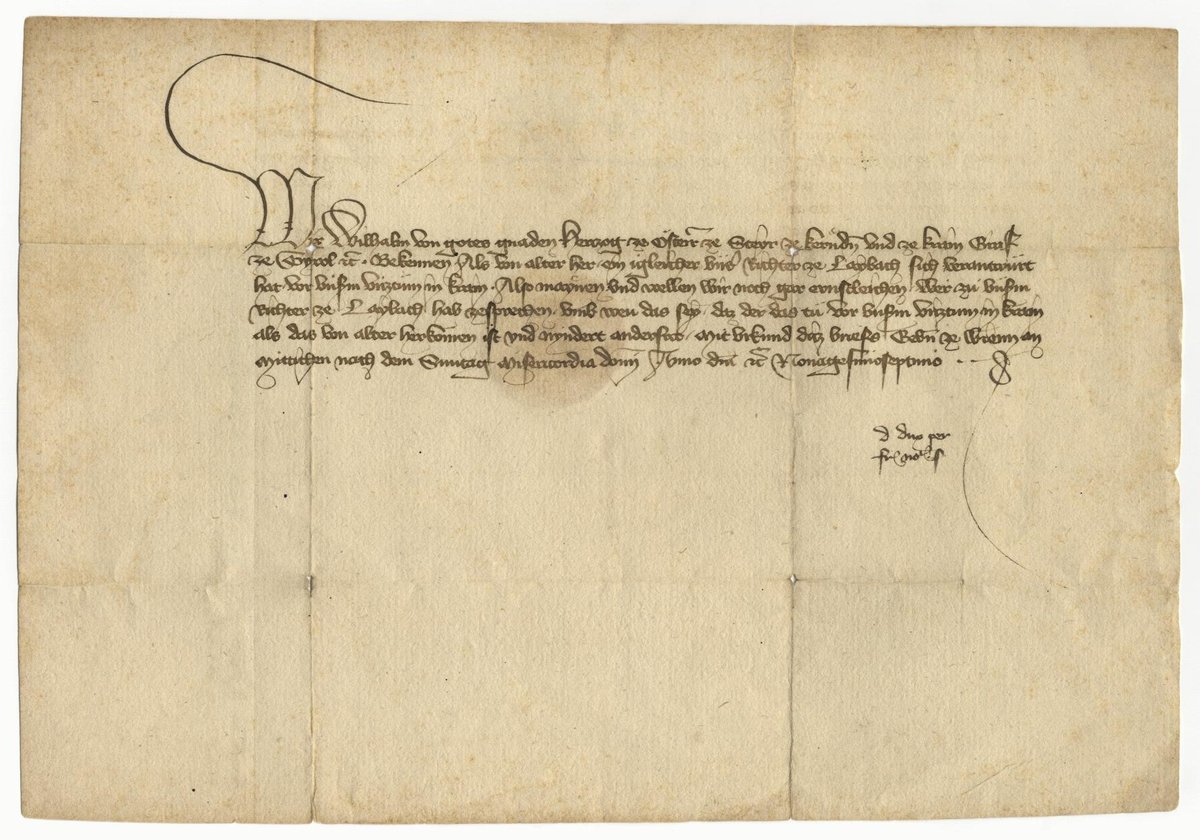 Wir Wilhalm von gotes gnaden Herczog ze Österr̄ ze Steyr ze kernd̄n vnd ze krain Graf
ze Tyrol ꝛc̄. Bekennen, Als von alter her ein igleicher vnser Richter ze Laybach sich verantwurt
hat vor vnserm viztum in krain, Also maynen vnd wellen wir noch gar ernstleichen, Wer zu vnserm
Richter ze Laybach hab zesprechen, vmb wew das sey, daz der das tu vor vnserm viztum in krain
als das von alter herkomen ist vnd nyndert anderswo. Mit vrkund dicz briefs Gebn̄ ze Wienn an
Mittichen nach dem Sunntag Misericordia domī Anno dm̄ ꝛc̄ Nonagesimoseptimo
d dux per